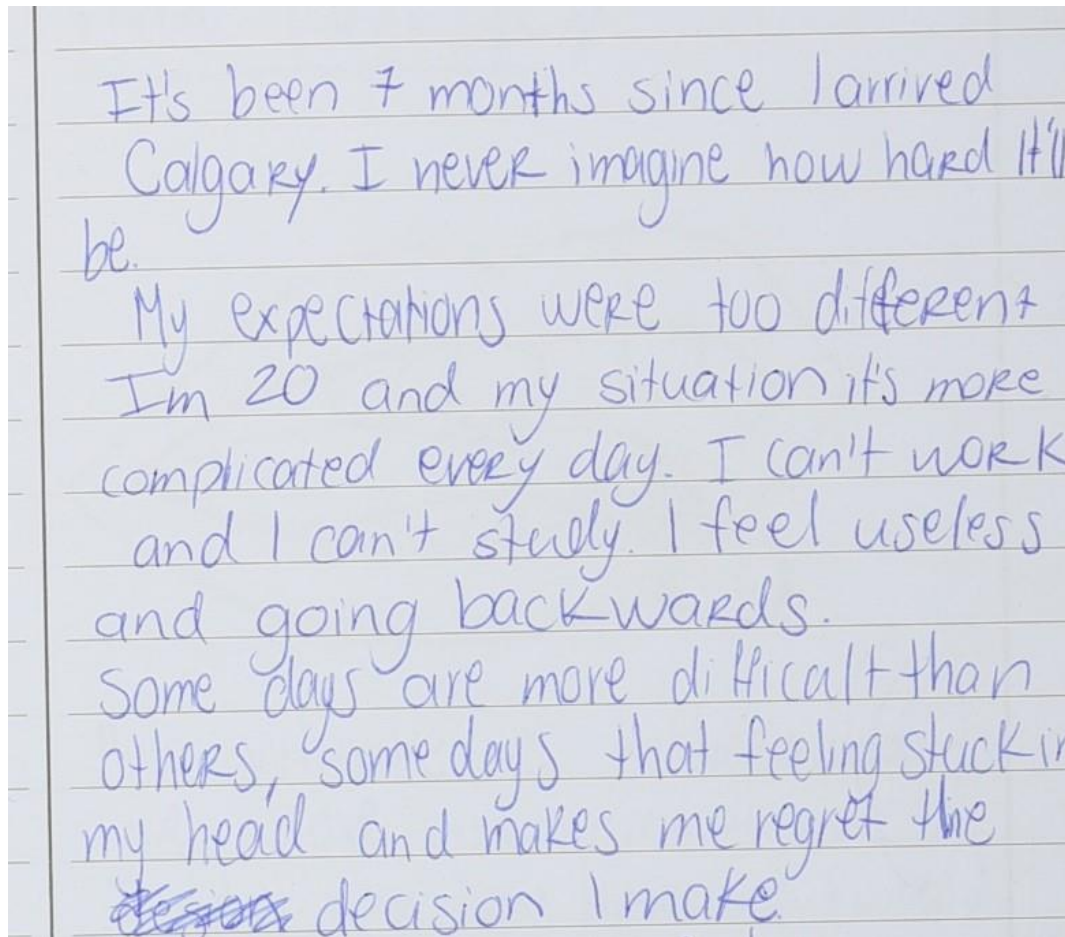 It's been 7 months since I arrived
Calgary. I never imagine how hard It'll
be.
My expectations were too different
Im 20 and my situation it's more
complicated every day. I can't work
and I can't study. I feel useless
and going backwards.
Some days are more difficalt than
others, some days that feeling stuck in
my head and makes me regret the
decision I make.